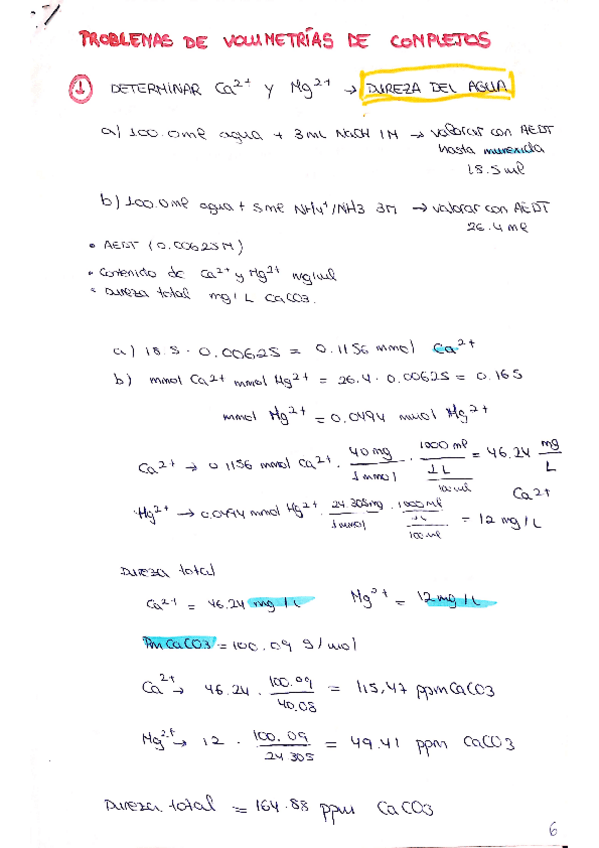 PROBLEMAS DE VOLUMETRÍAS DE COMPLEJOS
① DETERMINAR Ca2+ y Mg2+ → DUREZA DEL AGUA
a) 100.0 ml agua + 3 ml NaOH 1M → valorar con AEDT
hasta murexida
18.5 ml
b) 100.0 ml agua + 5 ml NH4+/NH3 3M → valorar con AEDT
26.4 ml
• AEDT (0.00625M)
• Contenido de Ca2+ y Mg2+ mg/ml
• Dureza total mg/L CaCO3.
a) 18.5 · 0.00625 = 0.1156 mmol Ca2+
b) mmol Ca2+ mmol Mg2+ = 26.4 · 0.00625 = 0.165
mmol Mg2+ = 0.0494 mmol Mg2+
Ca2+ → 0.1156 mmol Ca2+ · 40 mg / 1 mmol · 1000 ml / 1L / 100 ml = 46.24 mg/L Ca2+
Mg2+ → 0.0494 mmol Mg2+ · 24.305mg / 1 mmol · 1000 ml / 1L / 100 ml = 12 mg/L
Dureza total
Ca2+ = 46.24 mg/L Mg2+ = 12 mg/L
Pm CaCO3 = 100.09 g/mol
Ca2+ → 46.24 · 100.09 / 40.08 = 115,47 ppm CaCO3
Mg2+ → 12 · 100.09 / 24.305 = 49.41 ppm CaCO3
Dureza total = 164.88 ppm CaCO3
6